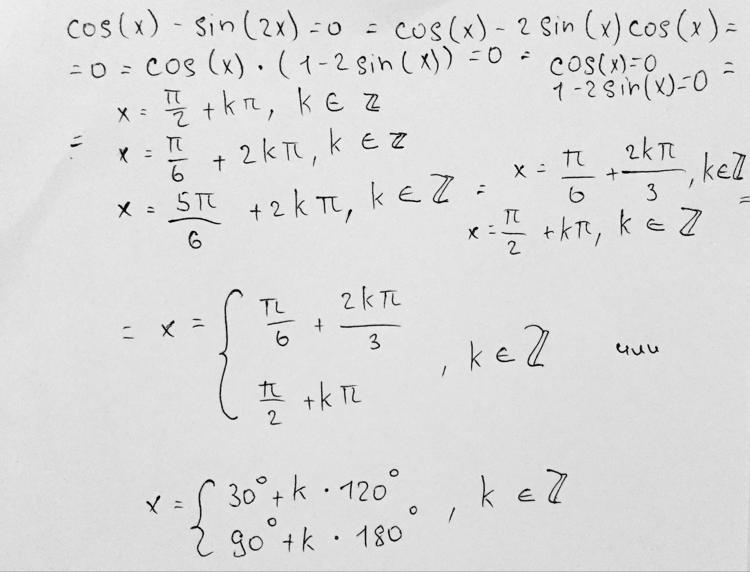 cos(x) - sin(2x) = 0 = cos(x) - 2 sin(x) cos(x) =
= 0 = cos(x) · (1 - 2 sin(x)) = 0 = cos(x) = 0
1 - 2 sin(x) = 0 =
x = π/2 + kπ, k ∈ ℤ
= x = π/6 + 2kπ, k ∈ ℤ
x = 5π/6 + 2kπ, k ∈ ℤ = x = π/6 + 2kπ/3, k ∈ ℤ
x = π/2 + kπ, k ∈ ℤ =
= x = { π/6 + 2kπ/3
π/2 + kπ , k ∈ ℤ или
x = { 30° + k · 120°
90° + k · 180° , k ∈ ℤ